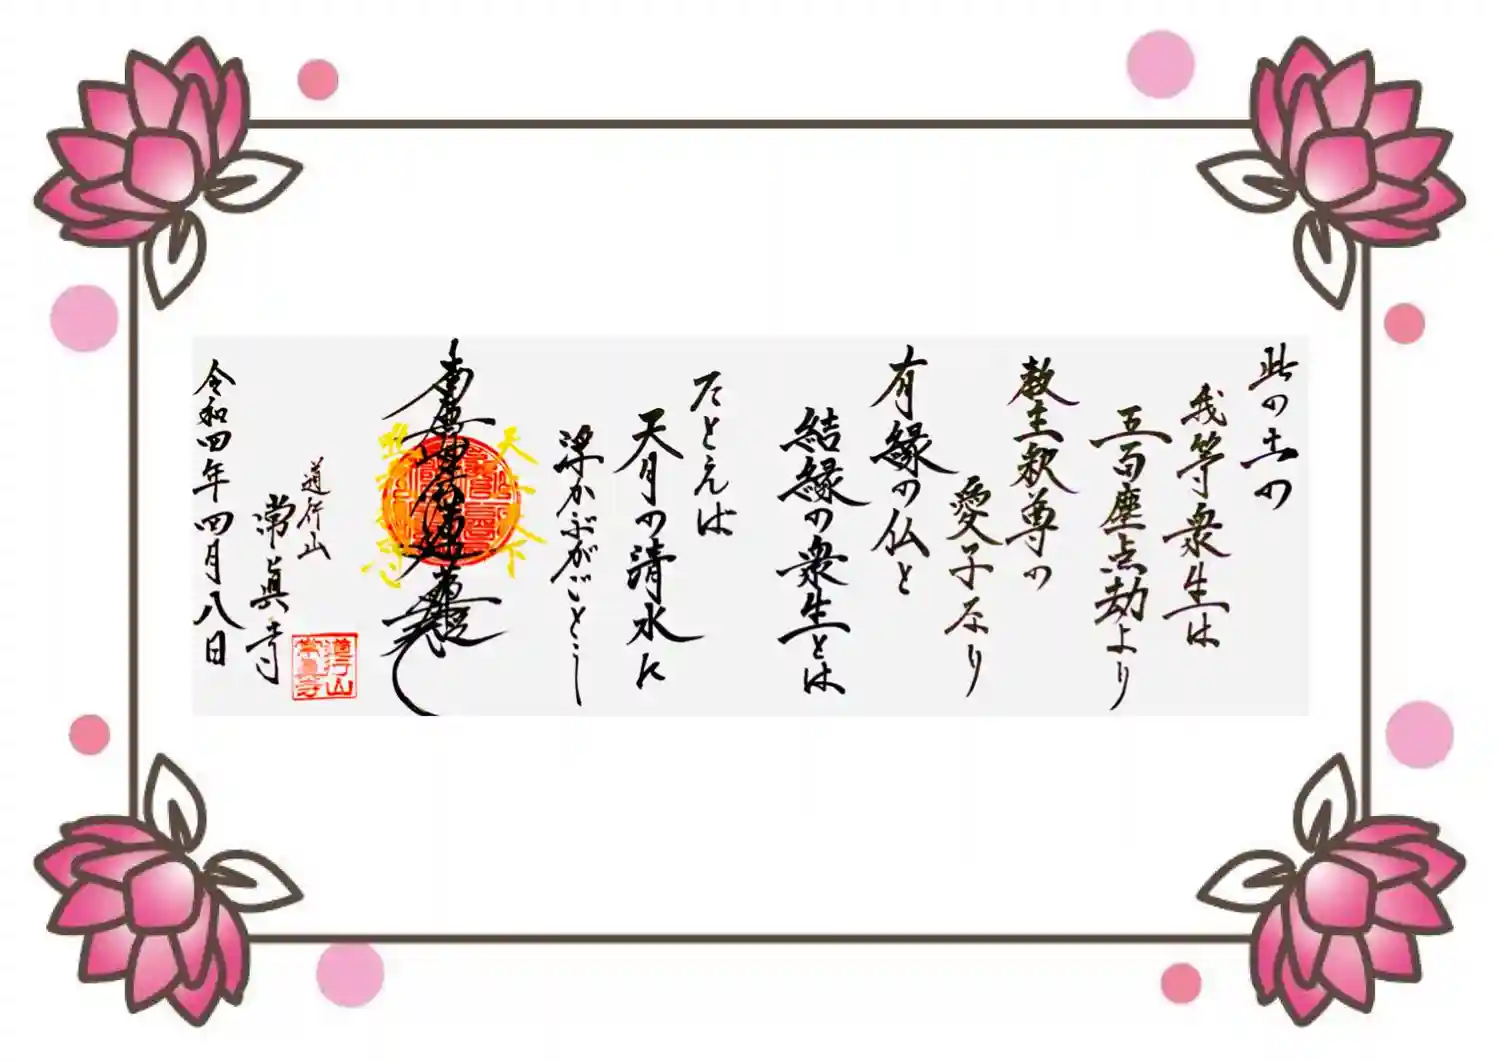 此の土の
我等衆生は
五百塵点劫より
教主釈尊の
愛子なり
有縁の仏と
結縁の衆生とは
たとえば
天月の清水に
浮かぶがごとし
南無妙法蓮華経
天 天下
道行山
常眞寺
道行山
常眞寺
令和四年四月八日